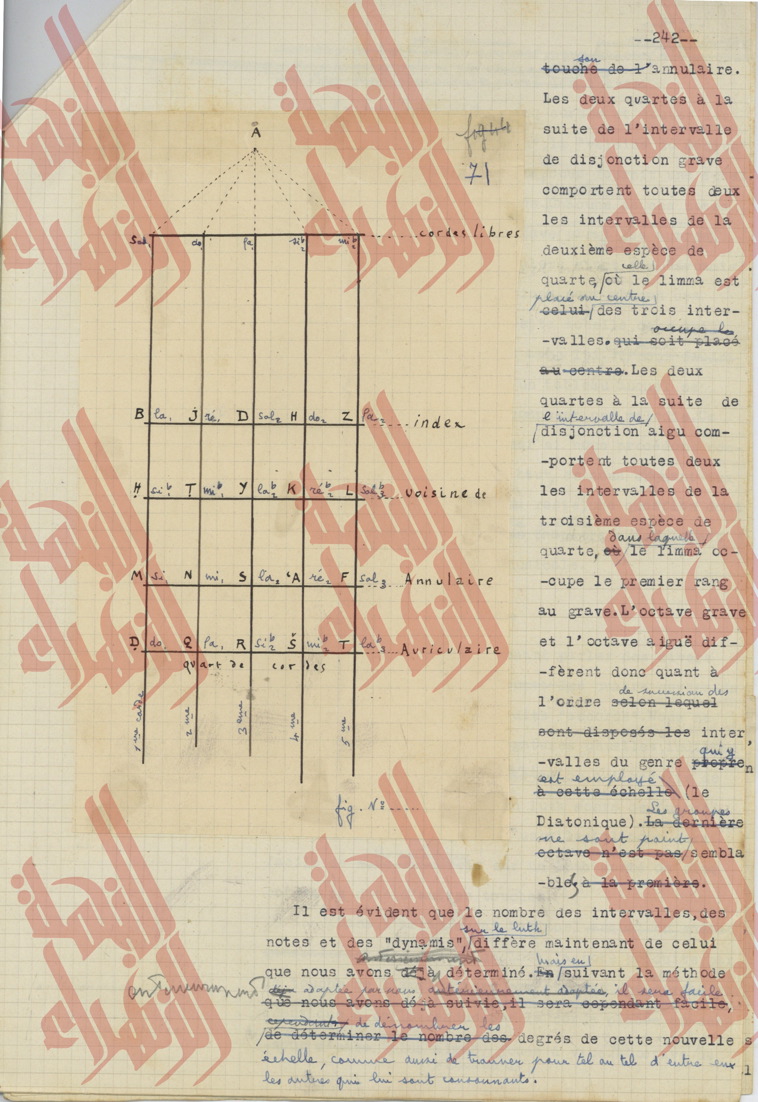 --242--
son
touche de l'annulaire.
Les deux qvartes à la
suite de l'intervalle
de disjonction grave
comportent toutes deux
les intervalles de la
deuxième espèce de
celle
quarte,/où le limma est
placé au centre
celui/des trois inter-
occupe le
-valles.qui soit placé
au centre.Les deux
quartes à la suite de
l'intervalle de
/disjonction aigu com-
-portent toutes deux
les intervalles de la
troisième espèce de
dans laquelle
quarte,où/le limma oc-
-cupe le premier rang
au grave.L'octave grave
et l'octave aiguë dif-
-fèrent donc quant à
de succession des
l'ordre selon lequel
sont disposés les inter
-valles du genre propre
qui y
est employé
à cette échelle (le
Les groupes
Diatonique).La dernière
ne sont point
octave n'est pas/sembla
-bles à la première.
fig 44
71
A
sol1 do1 fa sib2 mib2 ......cordes libres
B la1 J ré1 D sol2 H do2 Z fa3 ....index
H sib1 T mib1 Y lab2 K réb2 L solb3 ...voisine de
M si1 N mi1 S la2 'A ré2 F sol3 ...Annulaire
D do1 Q fa1 R sib2 Š mib2 T lab3 ....Avriculaire
quart de cordes
1ère corde
2me
3eme
4me
5me
fig. No.....
Il est évident que le nombre des intervalles,des
sur le luth
notes et des "dynamis",/diffère maintenant de celui
antérieurement
que nous avons déjà déterminé.En/suivant la méthode
Mais en
adoptée par nous antérieurement adoptée, il sera facile
que nous avons déjà suivie,il sera cependant facile,
cependant de dénombrer les
/de déterminer le nombre des degrés de cette nouvelle
échelle, comme aussi de trouver pour tel ou tel d'entre eux
les autres qui lui sont consonnants.
النهضة العربية